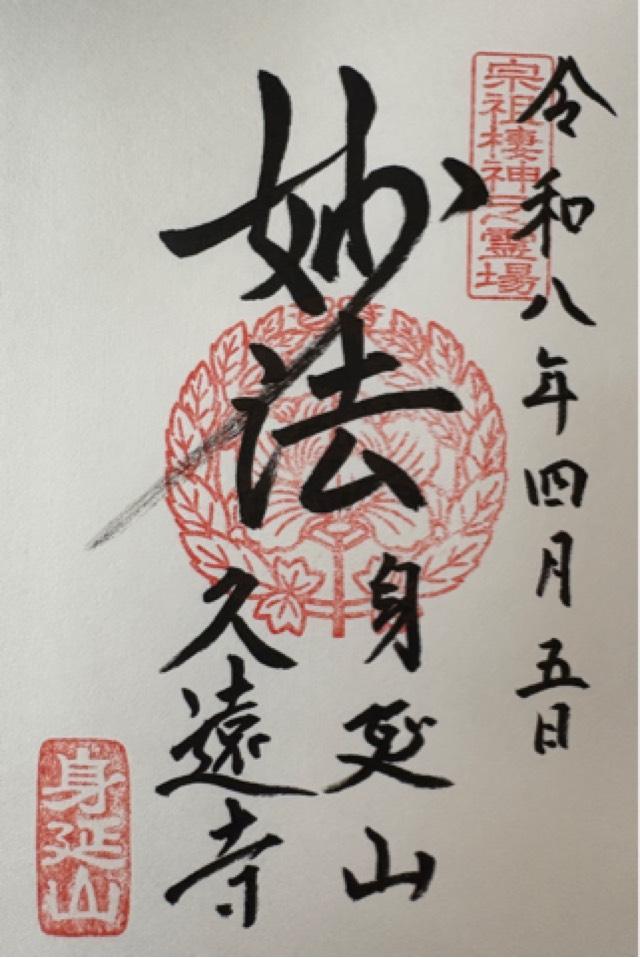 令和八年四月五日
宗祖棲神之霊場
妙法
身延山
久遠寺
身延山